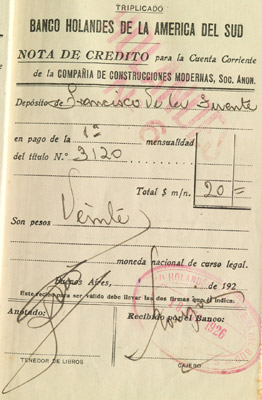 TRIPLICADO
BANCO HOLANDES DE LA AMERICA DEL SUD
NOTA DE CREDITO para la Cuenta Corriente
de la COMPAÑIA DE CONSTRUCCIONES MODERNAS, Soc. Anon.
Depósito de Francisco de la Fuente
en pago de la 1ª mensualidad
del título N.º 3120
Total $ m/n. 20=
Son pesos Veinte
moneda nacional de curso legal.
Buenos Aires, de 192
Este recibo para ser válido debe llevar las dos firmas que se indica.
Anotado: Recibido por el Banco:
1926
TENEDOR DE LIBROS CAJERO